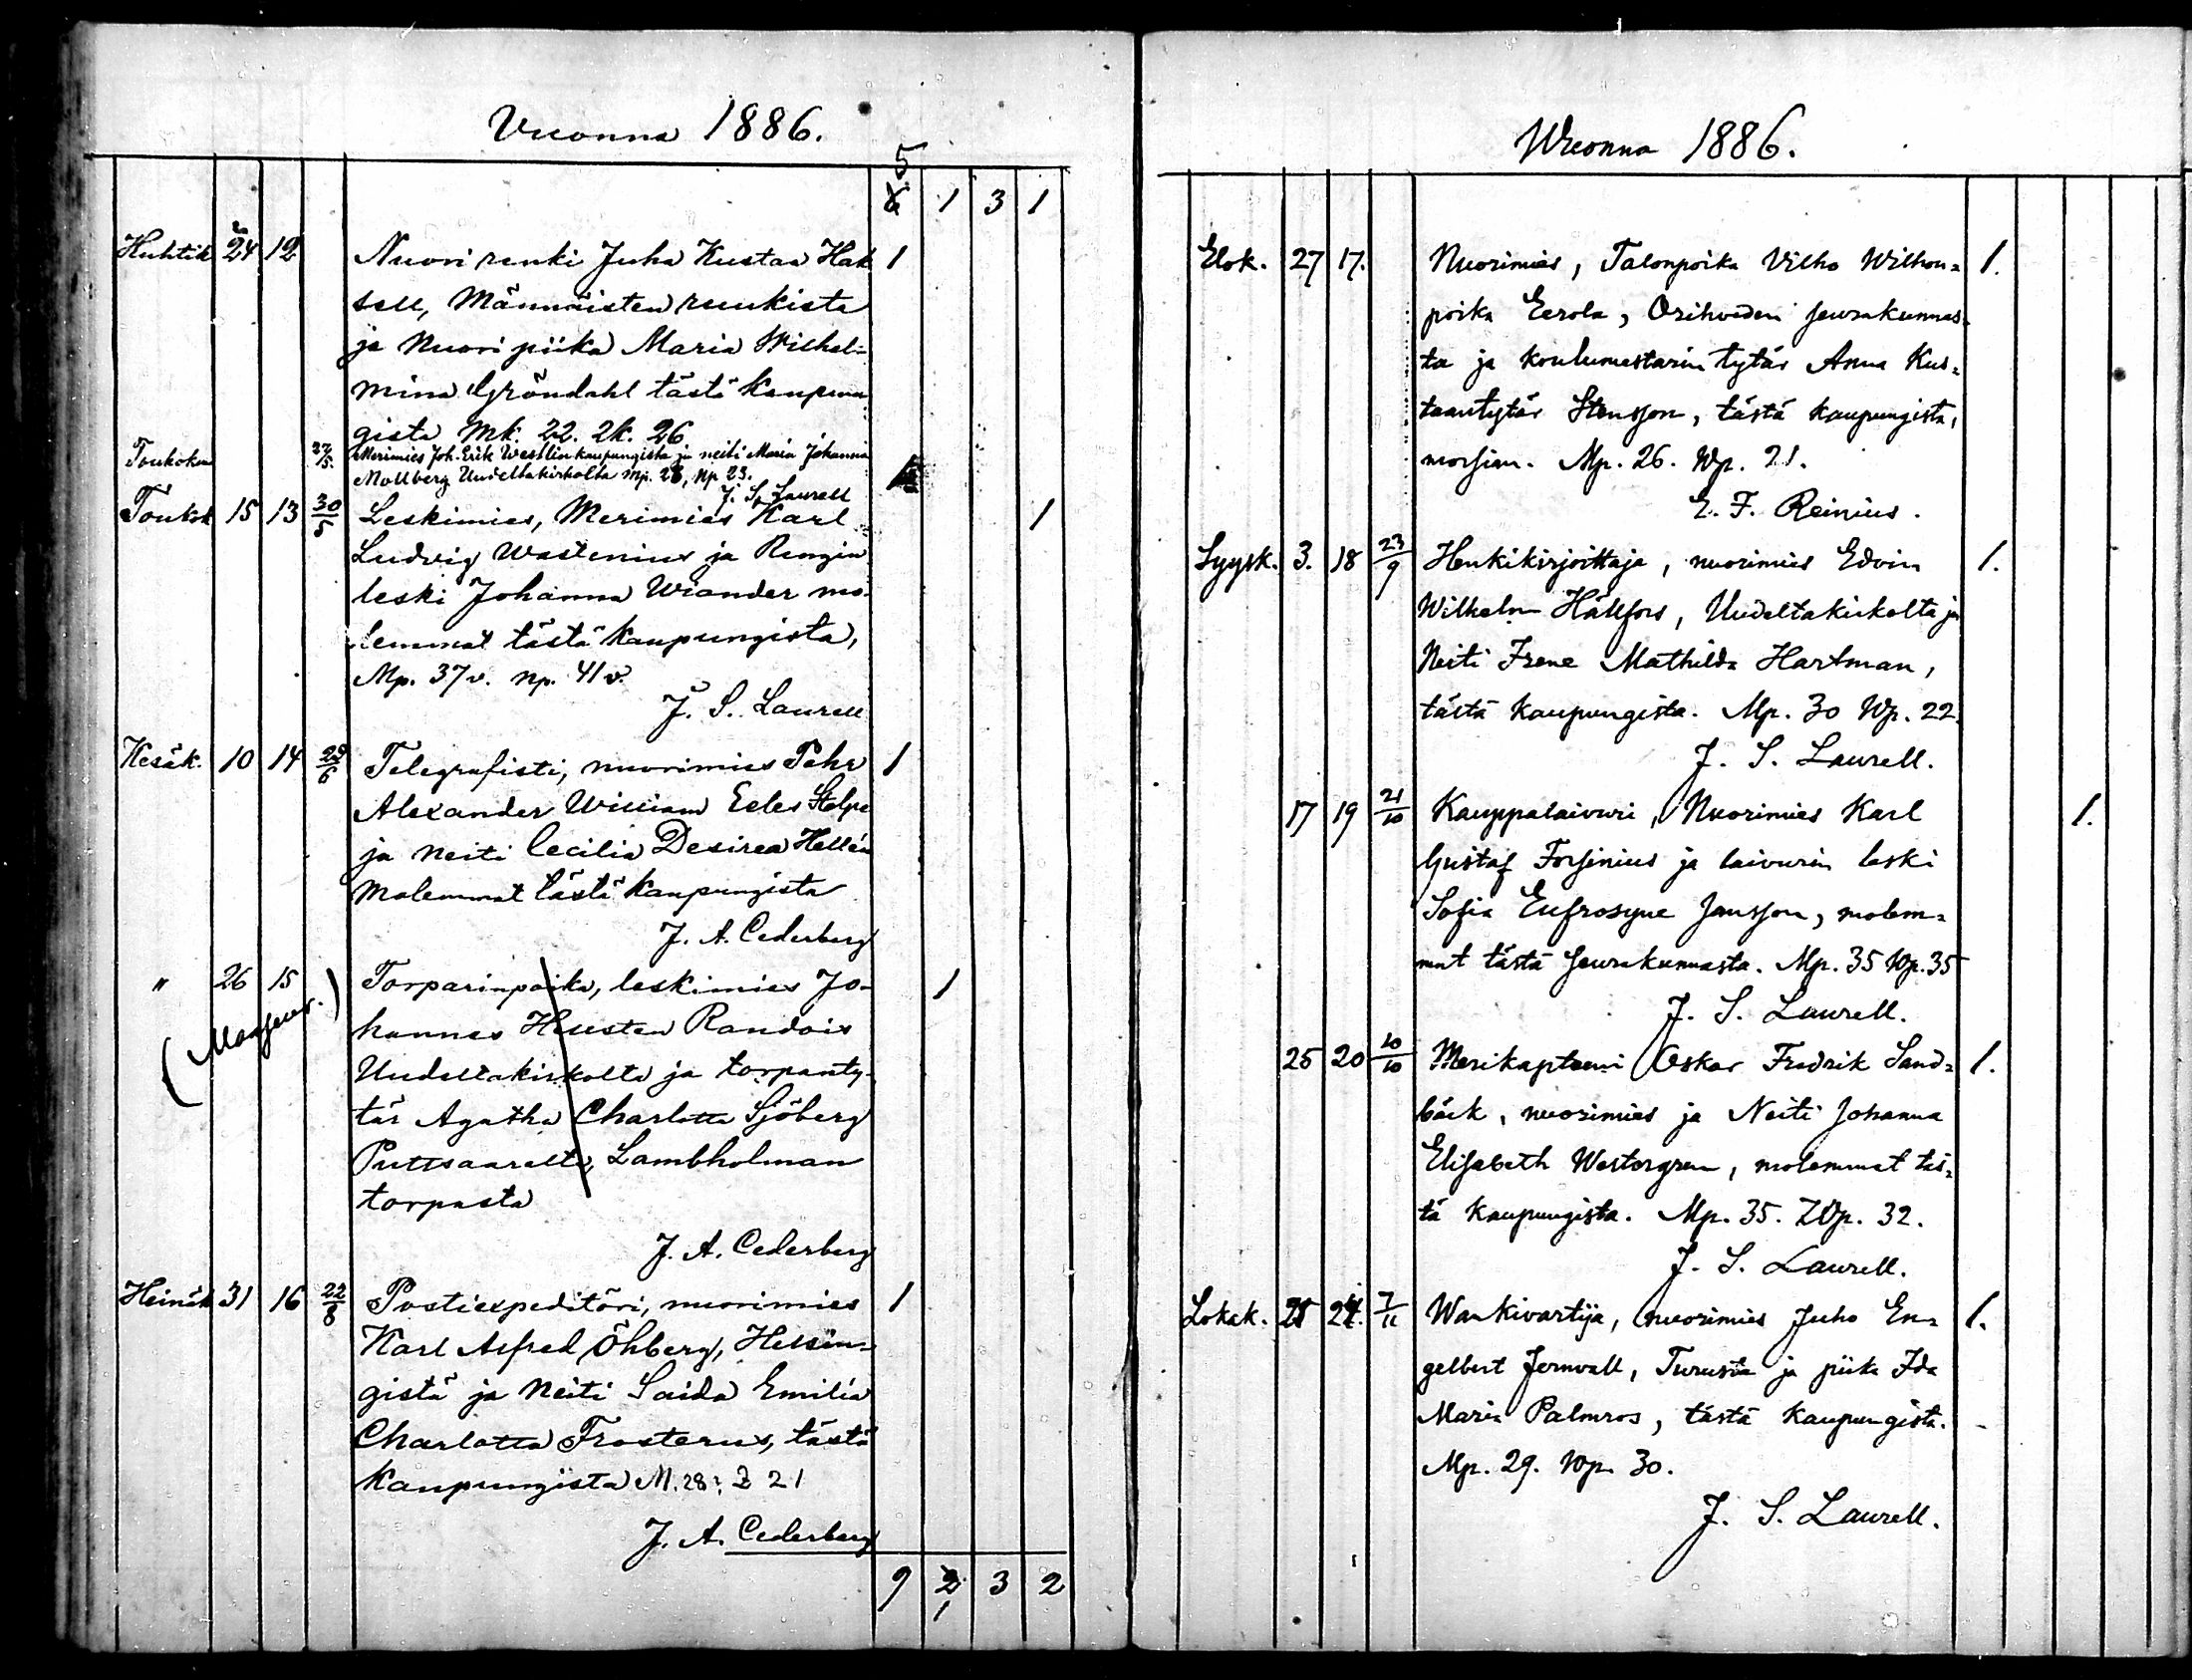 Vuonna 1886.
5
6 1 3 1
Huhtik 24 12 Nuori renki Juha Kustaa Hak 1
sell, Männäisten ruukista
ja Nuori piika Maria Wilhel-
mina Gröndahl tästä kaupun
gista Mk. 22. 2k. 26
Toukokuu 27/5. Merimies Joh. Erik Westlin kaupungista ja neiti Maria Johanna
Mollberg Uudeltakirkolta Mp. 28, Np 23.
J. S. Laurell
Toukok 15 13 30/5 Leskimies, Merimies Karl 1
Ludvig Wastenius ja Rengin
leski Johanna Wiander mo-
lemmat tästä kaupungista,
Mp. 37 v. Np. 41 v.
J. S. Laurell
Kesäk. 10 14 29/6 Telegrafisti, nuorimies Pehr 1
Alexander William Eeles Stolpe
ja Neiti Cecilia Desirea Hellén
Molemmat tästä kaupungista
J. A. Cederberg
" 26 15 Torparinpoika, leskimies Jo- 1
(Maaseur.)
hannes Heusten Randois
Uudeltakirkolta ja torpanty-
tär Agatha Charlotta Sjöberg
Puttsaarelta, Lambholman
torpasta
J. A. Cederberg
Heinäk 31 16 22/8 Postiexpeditöri, nuorimies 1
Karl Alfred Öhberg, Helsin-
gistä ja Neiti Saida Emilia
Charlotta Frosterus, tästä
kaupungista M. 28; Z 21
J. A. Cederberg
9 2 3 2
1
Wuonna 1886.
Elok. 27 17. Nuorimies, Talonpoika Vilho Wilhon= 1.
poika Eerola, Orihveden seurakunnas=
ta ja koulumestarin tytär Anna Kus=
taantytär Stensson, tästä kaupungista,
morsian. Mp. 26. Wp. 21.
E. F. Reinius.
Syysk. 3. 18 23/9 Henkikirjoittaja, nuorimies Edvin 1.
Wilhelm Hällfors, Uudeltakirkolta ja
Neiti Irene Mathilda Hartman,
tästä kaupungista. Mp. 30 Wp. 22.
J. S. Laurell.
17 19 21/10 Kauppalaivuri, Nuorimies Karl 1.
Gustaf Forsinius ja laivurin leski
Sofia Eufrosyne Jansson, molem=
mat tästä seurakunnasta. Mp. 35 Wp. 35
J. S. Laurell.
25 20 10/10 Merikapteeni Oskar Fredrik Sand= 1.
bäck, nuorimies ja Neiti Johanna
Elisabeth Westergren, molemmat täs=
tä kaupungista. Mp. 35. Wp. 32.
J. S. Laurell.
Lokak. 21. 7/11 Wankivartija, nuorimies Juho En= 1.
gelbert Jernvall, Turusta ja piika Ida
Maria Palmros, tästä kaupungista.
Mp. 29. Wp. 30.
J. S. Laurell.